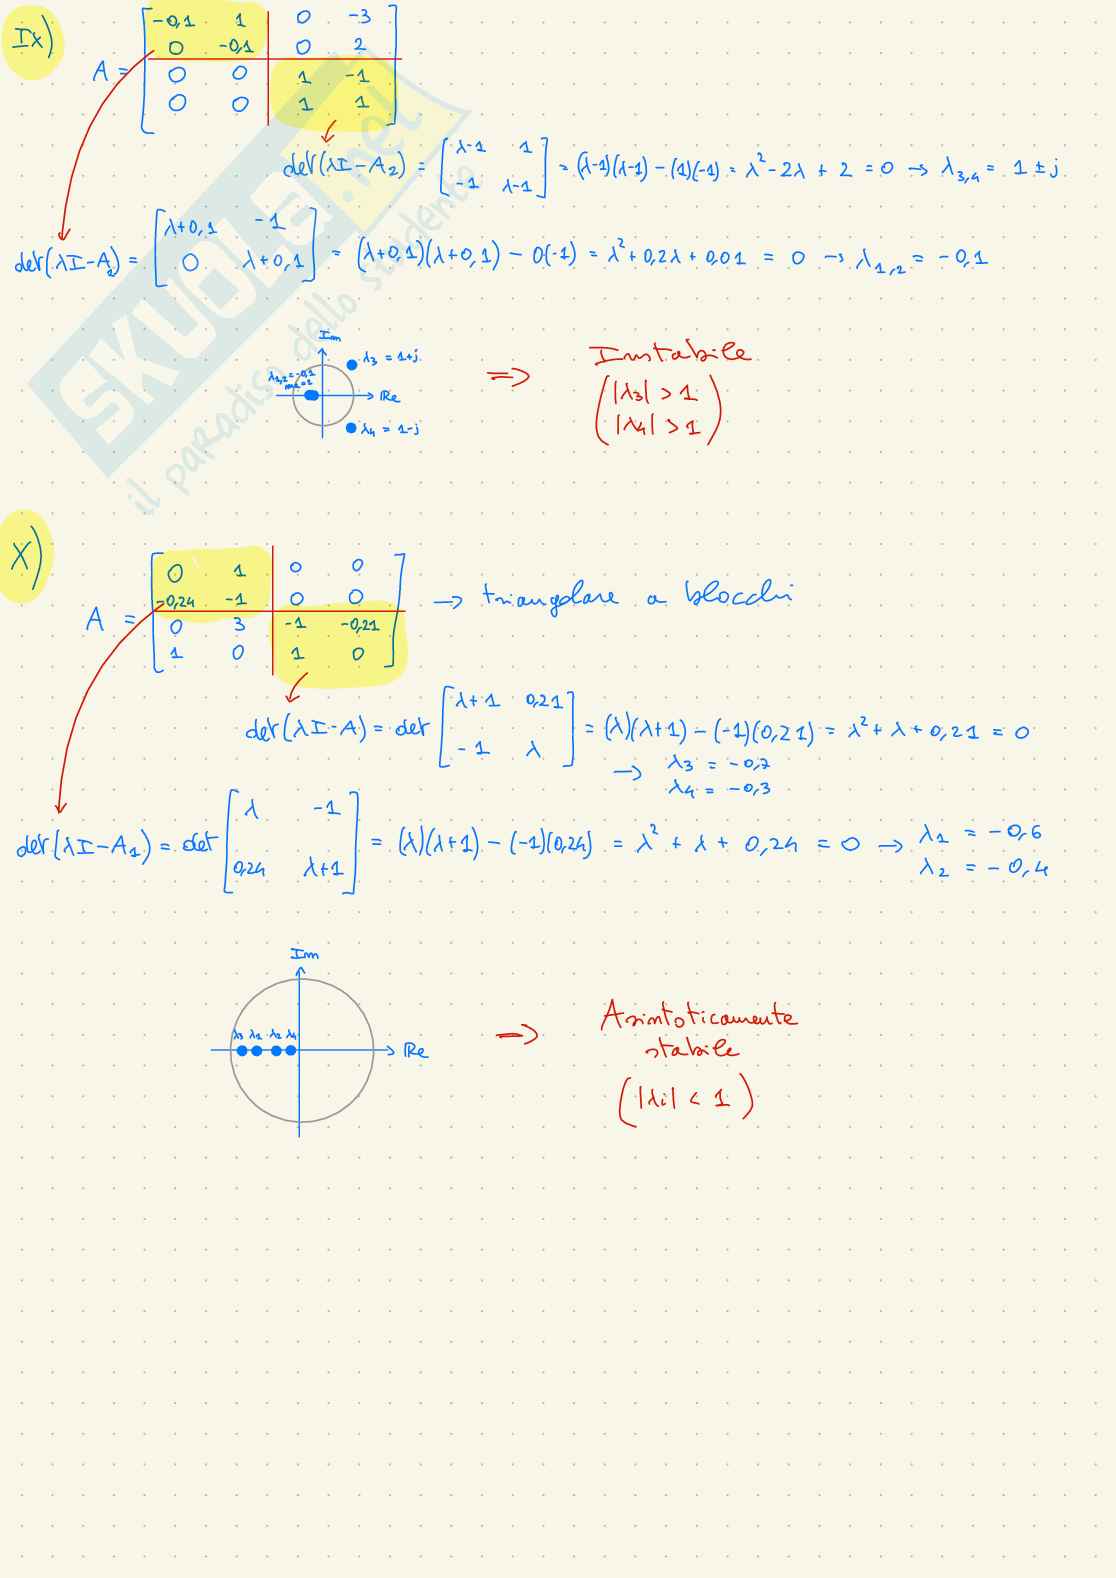 Ix)
A = [ -0,1 1 0 -3
0 -0,1 0 2
0 0 1 -1
0 0 1 1 ]
det(λI-A₂) = [ λ-1 1
-1 λ-1 ] = (λ-1)(λ-1) - (1)(-1) = λ² - 2λ + 2 = 0 → λ₃,₄ = 1 ± j
det(λI-A₁) = [ λ+0,1 -1
0 λ+0,1 ] = (λ+0,1)(λ+0,1) - 0(-1) = λ² + 0,2λ + 0,01 = 0 → λ₁,₂ = -0,1
Im
λ₃ = 1+j
λ₁,₂ = -0,1
Re
λ₄ = 1-j
⇒ Instabile
( |λ₃| > 1
|λ₄| > 1 )
X)
A = [ 0 1 0 0
-0,24 -1 0 0
0 3 -1 -0,21
1 0 1 0 ] → triangolare a blocchi
det(λI-A) = det [ λ+1 0,21
-1 λ ] = (λ)(λ+1) - (-1)(0,21) = λ² + λ + 0,21 = 0
→ λ₃ = -0,7
λ₄ = -0,3
det(λI-A₁) = det [ λ -1
0,24 λ+1 ] = (λ)(λ+1) - (-1)(0,24) = λ² + λ + 0,24 = 0 → λ₁ = -0,6
λ₂ = -0,4
Im
λ₃ λ₁ λ₂ λ₄
Re
⇒ Asintoticamente
stabile
( |λi| < 1 )
SKUOLA.net
il paradiso dello studente